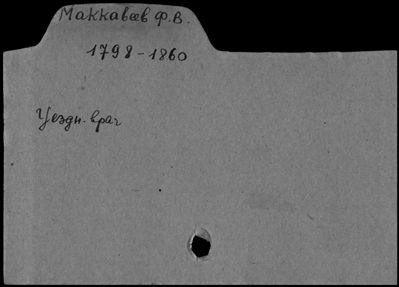 Маккавеев Ф.В.
1798-1860
Уездн. врач